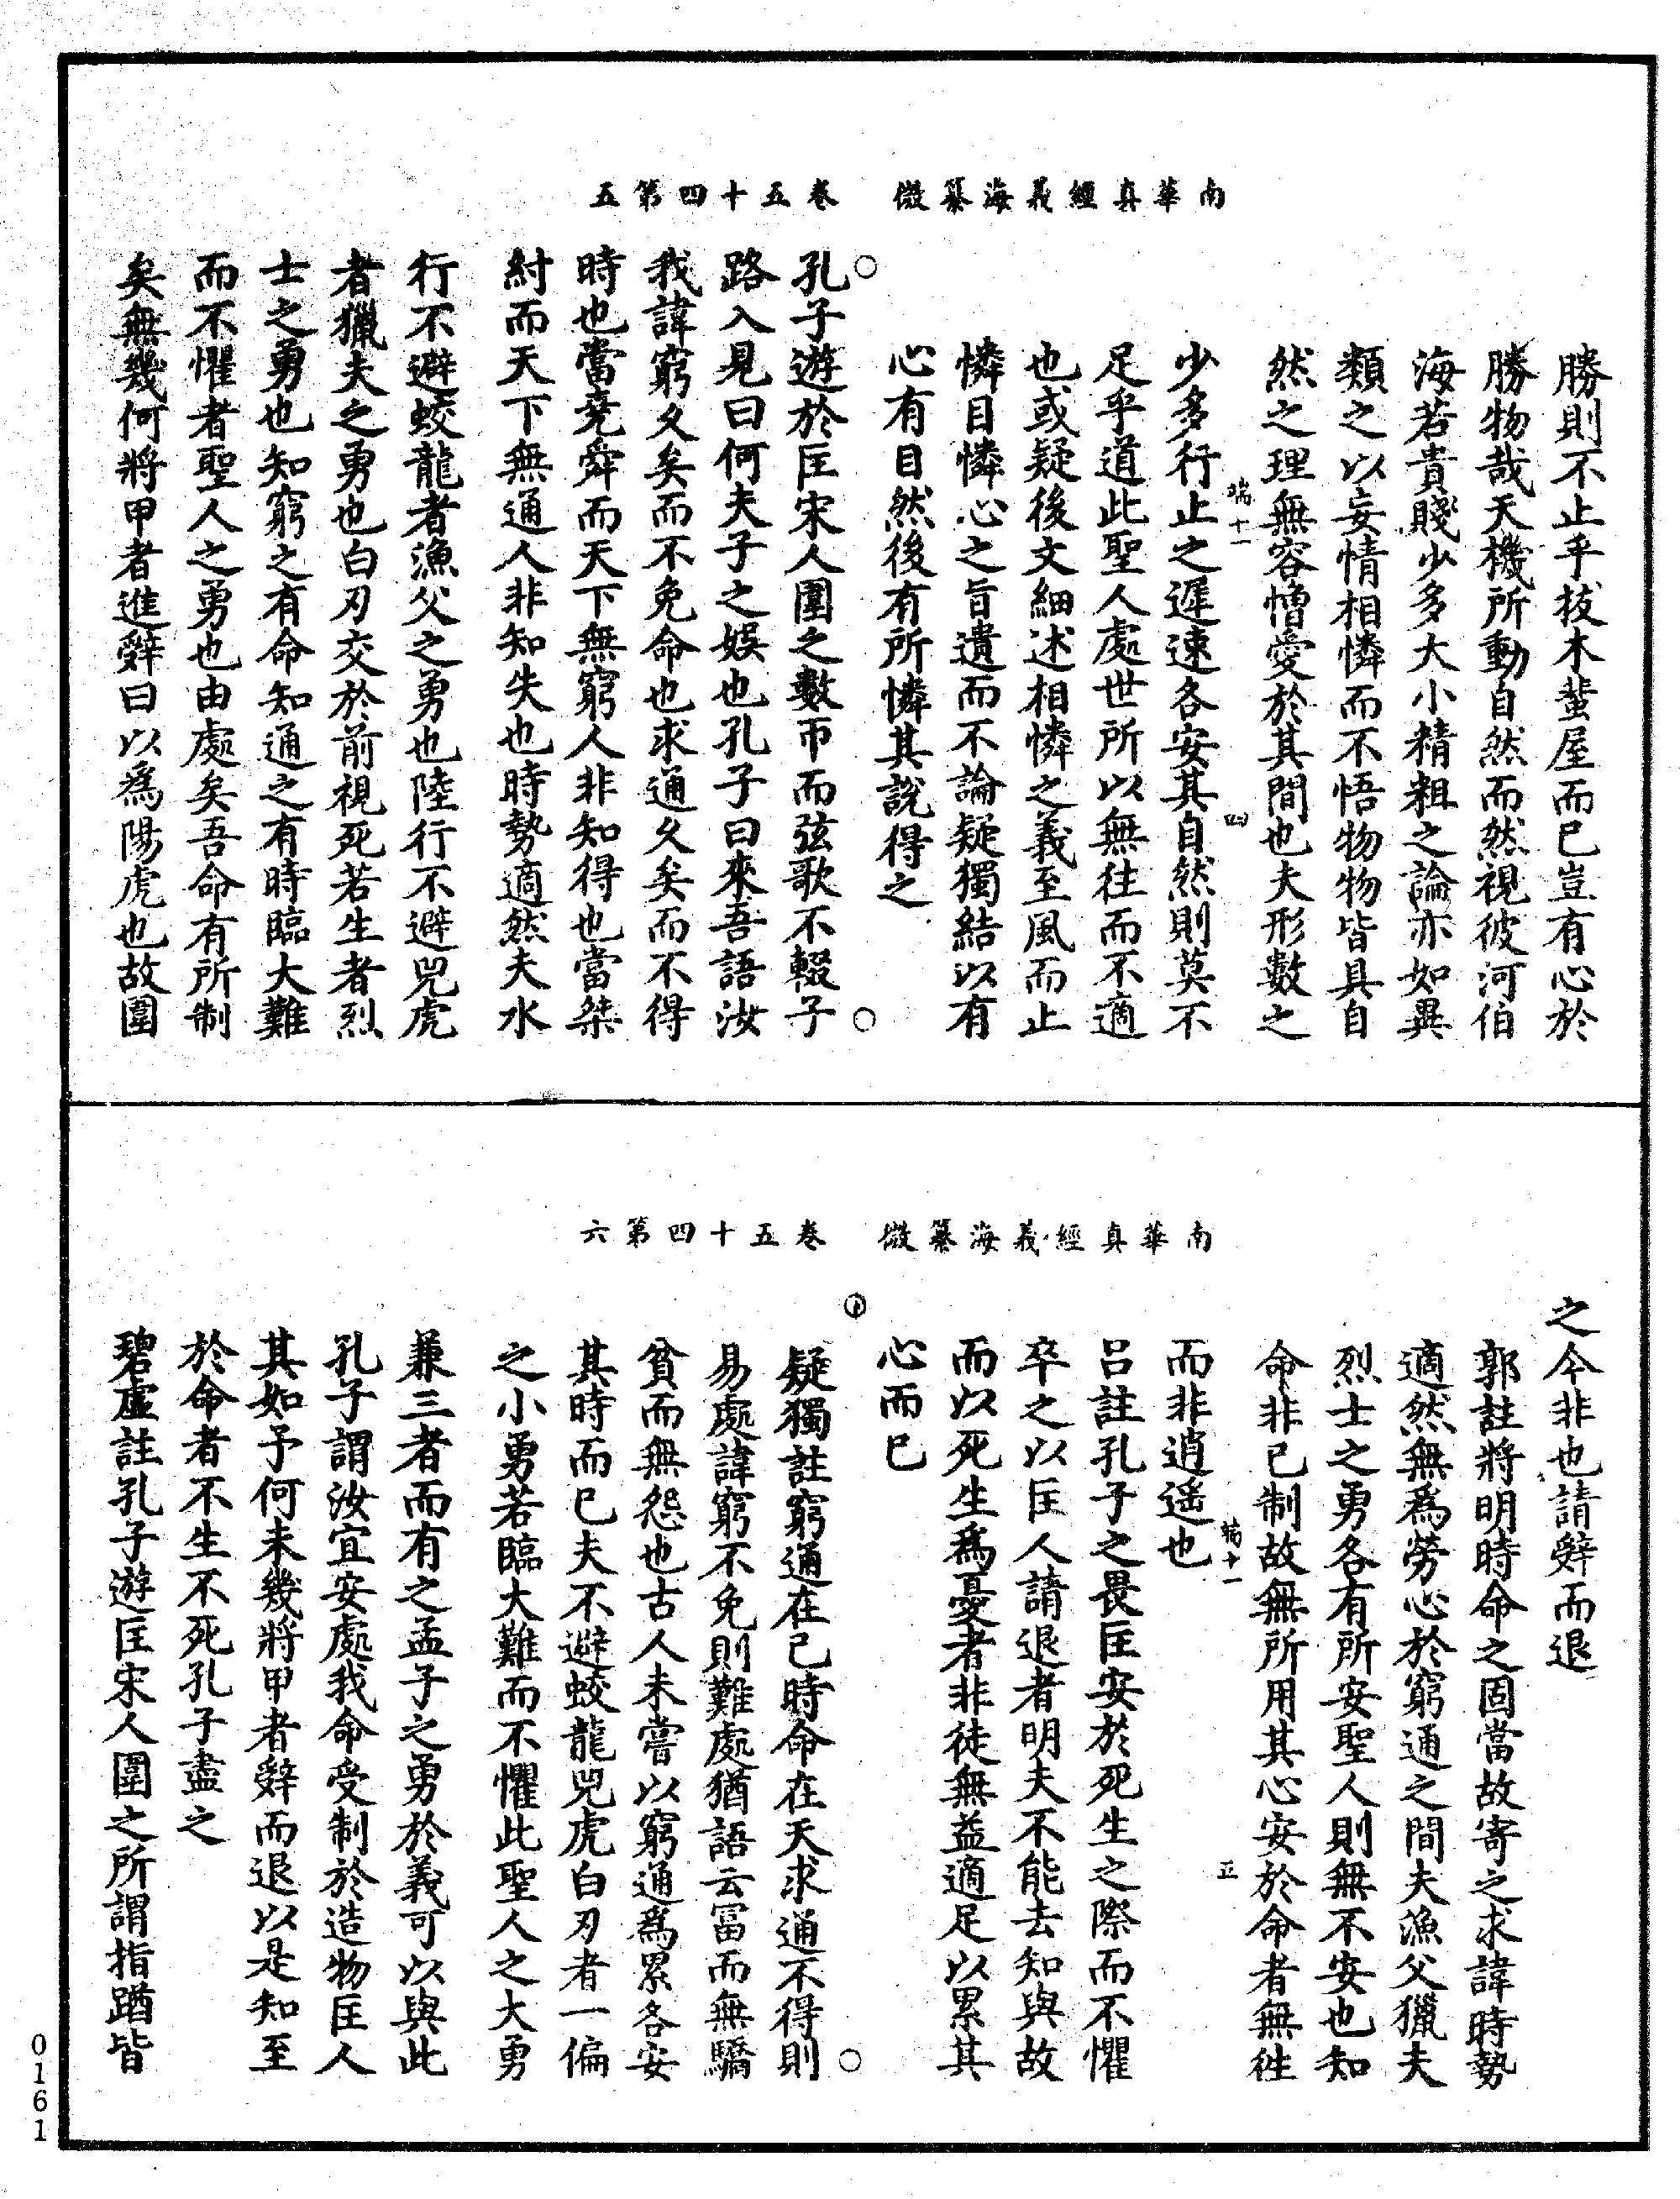 南華真經義海纂微 卷五十四第五
勝則不止乎拔木蜚屋而已豈有心於
勝物哉天機所動自然而然視彼河伯
海若貴賤少多大小精粗之論亦如異
類之以妄情相憐而不悟物物皆具自
然之理無容憎愛於其間也夫形數之
端十一 四
少多行止之遲速各安其自然則莫不
足乎道此聖人處世所以無往而不適
也或疑後文細述相憐之義至風而止
憐目憐心之旨遺而不論疑獨結以有
心有目然後有所憐其說得之
孔子遊於匡宋人圍之數帀而弦歌不輟子
路入見曰何夫子之娛也孔子曰來吾語汝
我諱窮久矣而不免命也求通久矣而不得
時也當堯舜而天下無窮人非知得也當桀
紂而天下無通人非知失也時勢適然夫水
行不避蛟龍者漁父之勇也陸行不避兕虎
者獵夫之勇也白刃交於前視死若生者烈
士之勇也知窮之有命知通之有時臨大難
而不懼者聖人之勇也由處矣吾命有所制
矣無幾何將甲者進辭曰以為陽虎也故圍
南華真經義海纂微 卷五十四第六
之今非也請辭而退
郭註將明時命之固當故寄之求諱時勢
適然無為勞心於窮通之間夫漁父獵夫
烈士之勇各有所安聖人則無不安也知
命非己制故無所用其心安於命者無往
端十一 五
而非逍遙也
呂註孔子之畏匡安於死生之際而不懼
卒之以匡人請退者明夫不能去知與故
而以死生為憂者非徒無益適足以累其
心而已
疑獨註窮通在己時命在天求通不得則
易處諱窮不免則難處猶語云富而無驕
貧而無怨也古人未嘗以窮通為累各安
其時而已夫不避蛟龍兕虎白刃者一偏
之小勇若臨大難而不懼此聖人之大勇
兼三者而有之孟子之勇於義可以與此
孔子謂汝宜安處我命受制於造物匡人
其如予何未幾將甲者辭而退以是知至
於命者不生不死孔子盡之
碧虛註孔子遊匡宋人圍之所謂指踏皆
0161